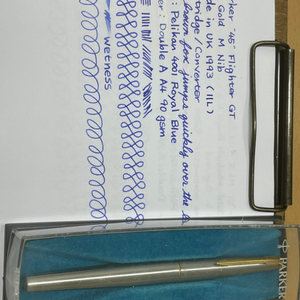 rker "45" Flighter GT
Gold M Nib
tridge/Converter
de in UK 1993 (IIL)
brown fox jumps quickly over the
: Pelikan 4001 Royal Blue
er : Double A A4 90 gsm
wetness
PARKER